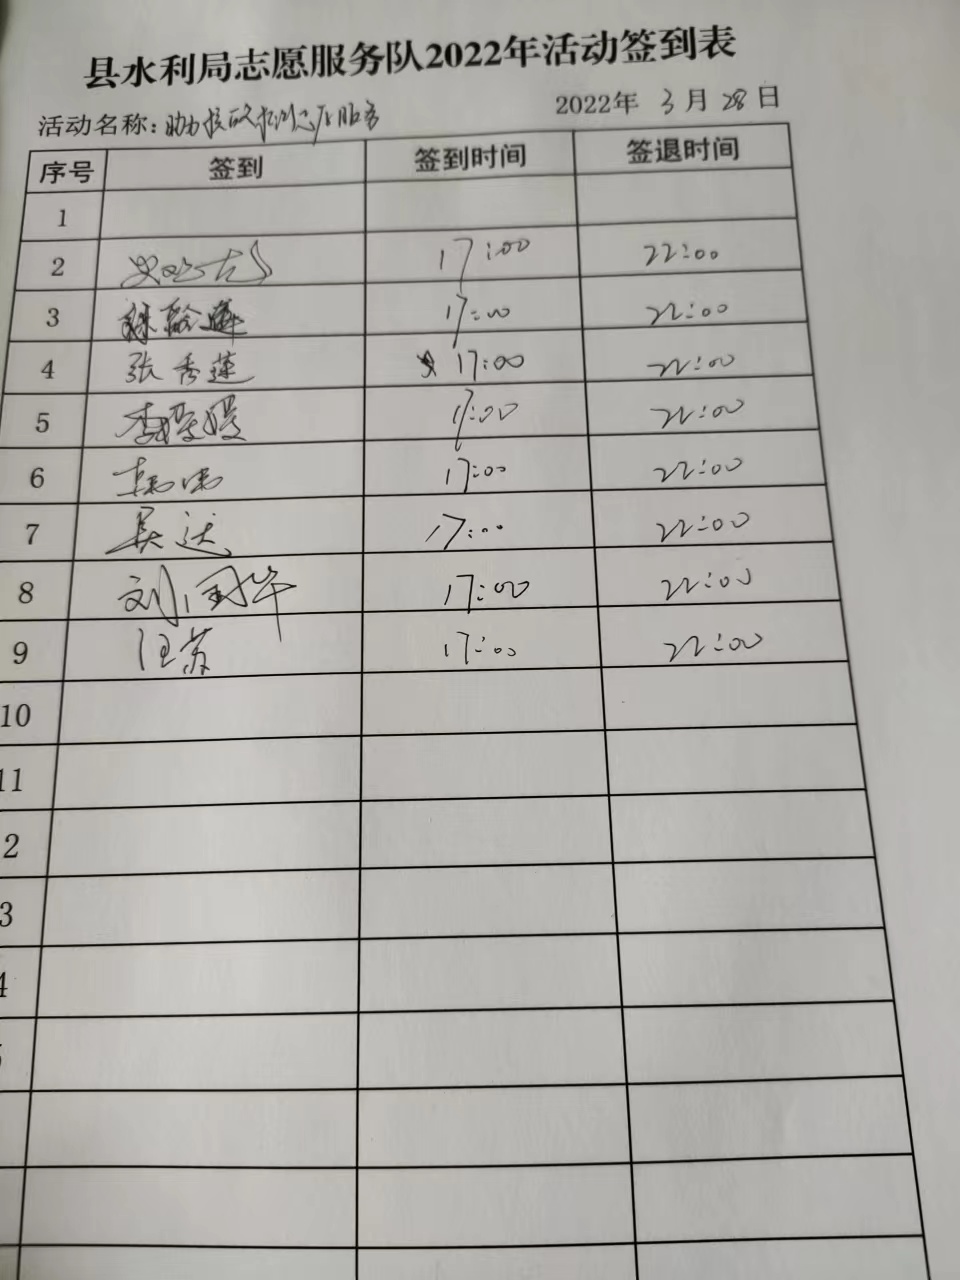 县水利局志愿服务队2022年活动签到表
活动名称：助力核酸检测志愿服务 2022年 3月 28日
序号 签到 签到时间 签退时间
1
2 17:00 22:00
3 17:00 22:00
4 张秀莲 17:00 22:00
5 李 媛 17:00 22:00
6 韩伟 17:00 22:00
7 吴达 17:00 22:00
8 刘国华 17:00 22:00
9 汪苏 17:00 22:00
10
11
2
3
4